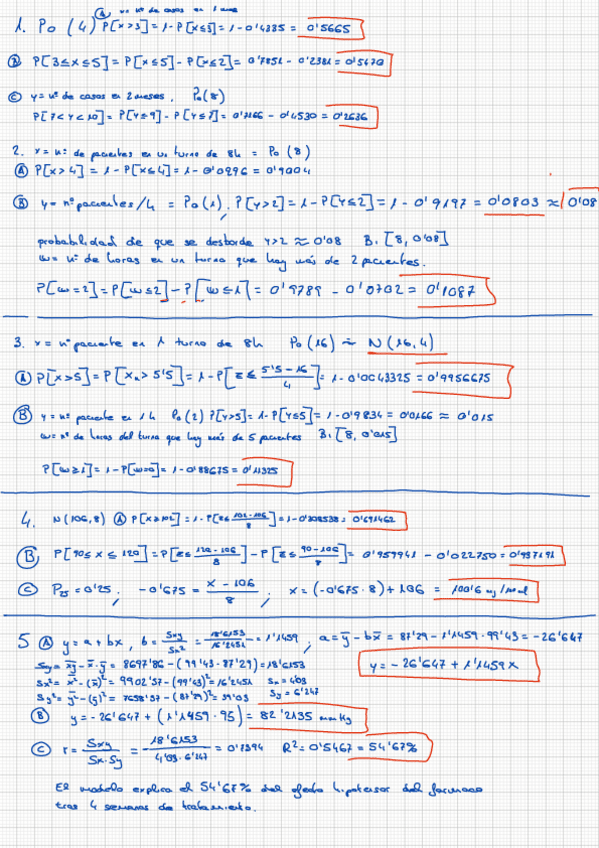 x = nº de casos en 1 mes
1. Po (4) Ⓐ P[x>3] = 1 - P[x≤3] = 1 - 0'4335 = 0'5665
Ⓑ P[3≤x≤5] = P[x≤5] - P[x≤2] = 0'7851 - 0'2381 = 0'5470
Ⓒ y = nº de casos en 2 meses. Po(8)
P[7<y<10] = P[y≤9] - P[y≤7] = 0'7166 - 0'4530 = 0'2636
2. x = nº de pacientes en un turno de 8h = Po (8)
Ⓐ P[x>4] = 1 - P[x≤4] = 1 - 0'0996 = 0'9004
Ⓑ y = nº pacientes/h = Po(1), P[y>2] = 1 - P[y≤2] = 1 - 0'9197 = 0'0803 ≈ 0'08
probabilidad de que se desborde y>2 ≈ 0'08 Bi [8, 0'08]
w = nº de horas en un turno que hay más de 2 pacientes.
P[w=2] = P[w≤2] - P[w≤1] = 0'9789 - 0'8702 = 0'1087
3. x = nº paciente en 1 turno de 8h Po(16) ≈ N(16,4)
Ⓐ P[x>5] = P[xₙ > 5'5] = 1 - P[z ≤ 5'5-16/4] = 1 - 0'0043325 = 0'9956675
Ⓑ y = nº paciente en 1h Po(2) P[y>5] = 1 - P[y≤5] = 1 - 0'9834 = 0'0166 ≈ 0'015
w = nº de horas del turno que hay más de 5 pacientes Bi [8, 0'015]
P[w≥1] = 1 - P[w=0] = 1 - 0'88675 = 0'11325
4. N(106,8) Ⓐ P[x≥102] = 1 - P[z≤ 102-106/8] = 1 - 0'308538 = 0'691462
Ⓑ P[90≤x≤120] = P[z≤ 120-106/8] - P[z≤ 90-106/8] = 0'959941 - 0'022750 = 0'937191
Ⓒ P₂₅ = 0'25, -0'675 = x - 106/8, x = (-0'675·8) + 106 = 100'6 mg/ml
5 Ⓐ y = a + bx, b = Sxy/Sx² = 18'6153/16'2451 = 1'1459, a = ȳ - bx̄ = 87'29 - 1'1459·99'43 = -26'647
Sxy = x̄ȳ - x̄·ȳ = 8697'86 - (99'43·87'29) = 18'6153
y = -26'647 + 1'1459x
Sx² = x̄² - (x̄)² = 9902'57 - (99'43)² = 16'2451 Sx = 4'03
Sy² = ȳ² - (ȳ)² = 7658'57 - (87'29)² = 39'03 Sy = 6'247
Ⓑ y = -26'647 + (1'1459·95) = 82'2135 mmHg
Ⓒ r = Sxy/Sx·Sy = 18'6153/4'03·6'247 = 0'7394 R² = 0'5467 = 54'67%
El modelo explica el 54'67% del efecto hipotensor del fármaco
tras 4 semanas de tratamiento.